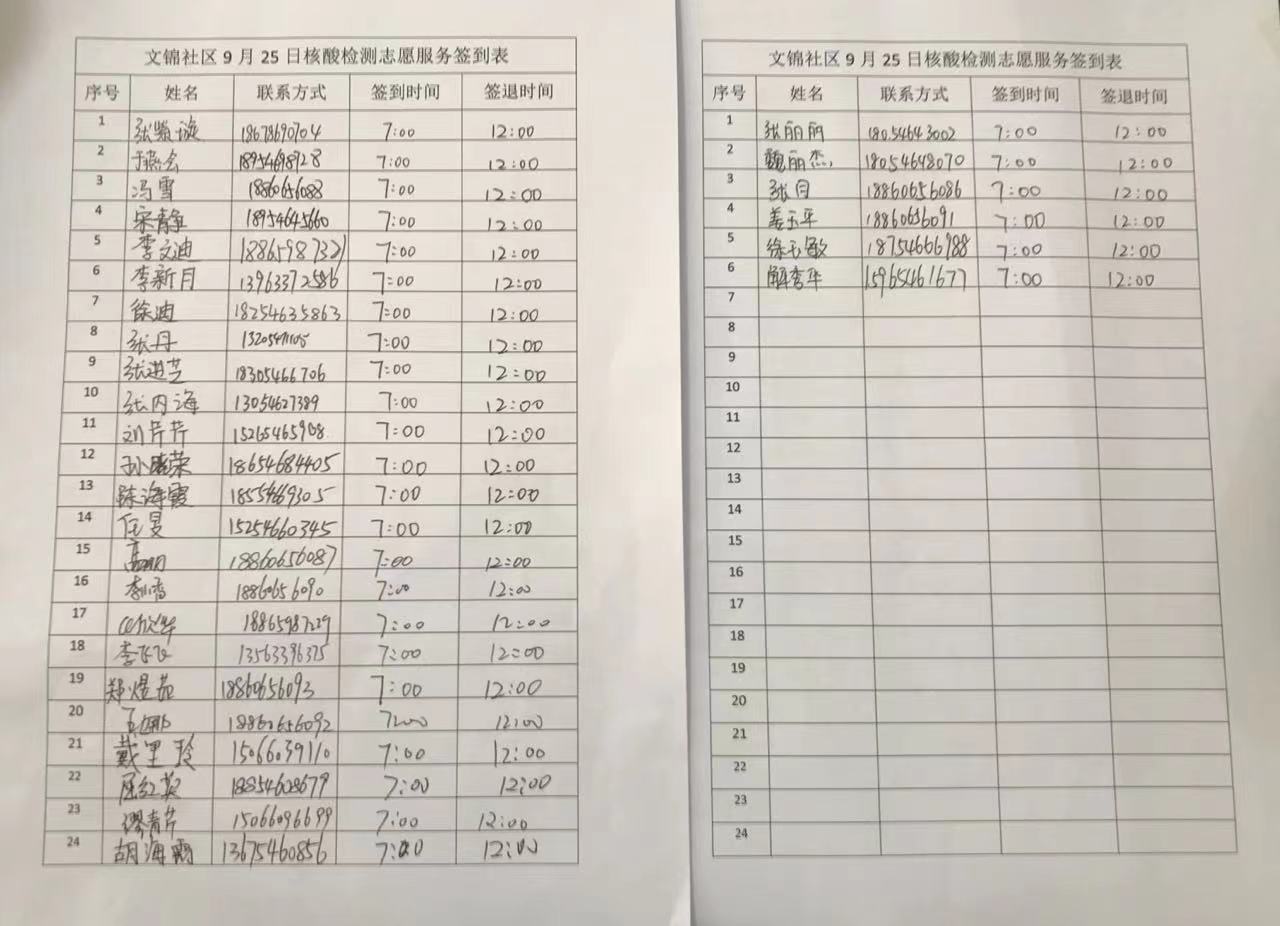 文锦社区9月25日核酸检测志愿服务签到表
序号 姓名 联系方式 签到时间 签退时间
1 7:00 12:00
2 7:00 12:00
3 冯雪 18860656088 7:00 12:00
4 宋静 18954645660 7:00 12:00
5 李文迪 18865987321 7:00 12:00
6 李新月 13963372586 7:00 12:00
7 徐迪 18254635863 7:00 12:00
8 张丹 7:00 12:00
9 张进芝 18305466706 7:00 12:00
10 张内海 13054627389 7:00 12:00
11 刘芹芹 15265465908 7:00 12:00
12 孙晓荣 18654684405 7:00 12:00
13 陈海霞 18554669305 7:00 12:00
14 任旻 15254660345 7:00 12:00
15 高明 18860656087 7:00 12:00
16 18860656090 7:00 12:00
17 18865987229 7:00 12:00
18 李飞飞 13563396375 7:00 12:00
19 郑煜茹 18860656093 7:00 12:00
20 18860656092 7:00 12:00
21 戴里玲 15066039110 7:00 12:00
22 屈红英 18854608679 7:00 12:00
23 缪青芹 15066096699 7:00 12:00
24 胡海霸 13675460856 7:00 12:00
文锦社区9月25日核酸检测志愿服务签到表
序号 姓名 联系方式 签到时间 签退时间
1 张丽丽 18054643002 7:00 12:00
2 魏丽杰 18054648070 7:00 12:00
3 张月 18860656086 7:00 12:00
4 姜玉平 18860656091 7:00 12:00
5 徐玉敏 18754666988 7:00 12:00
6 解秀华 15965461677 7:00 12:00
7
8
9
10
11
12
13
14
15
16
17
18
19
20
21
22
23
24